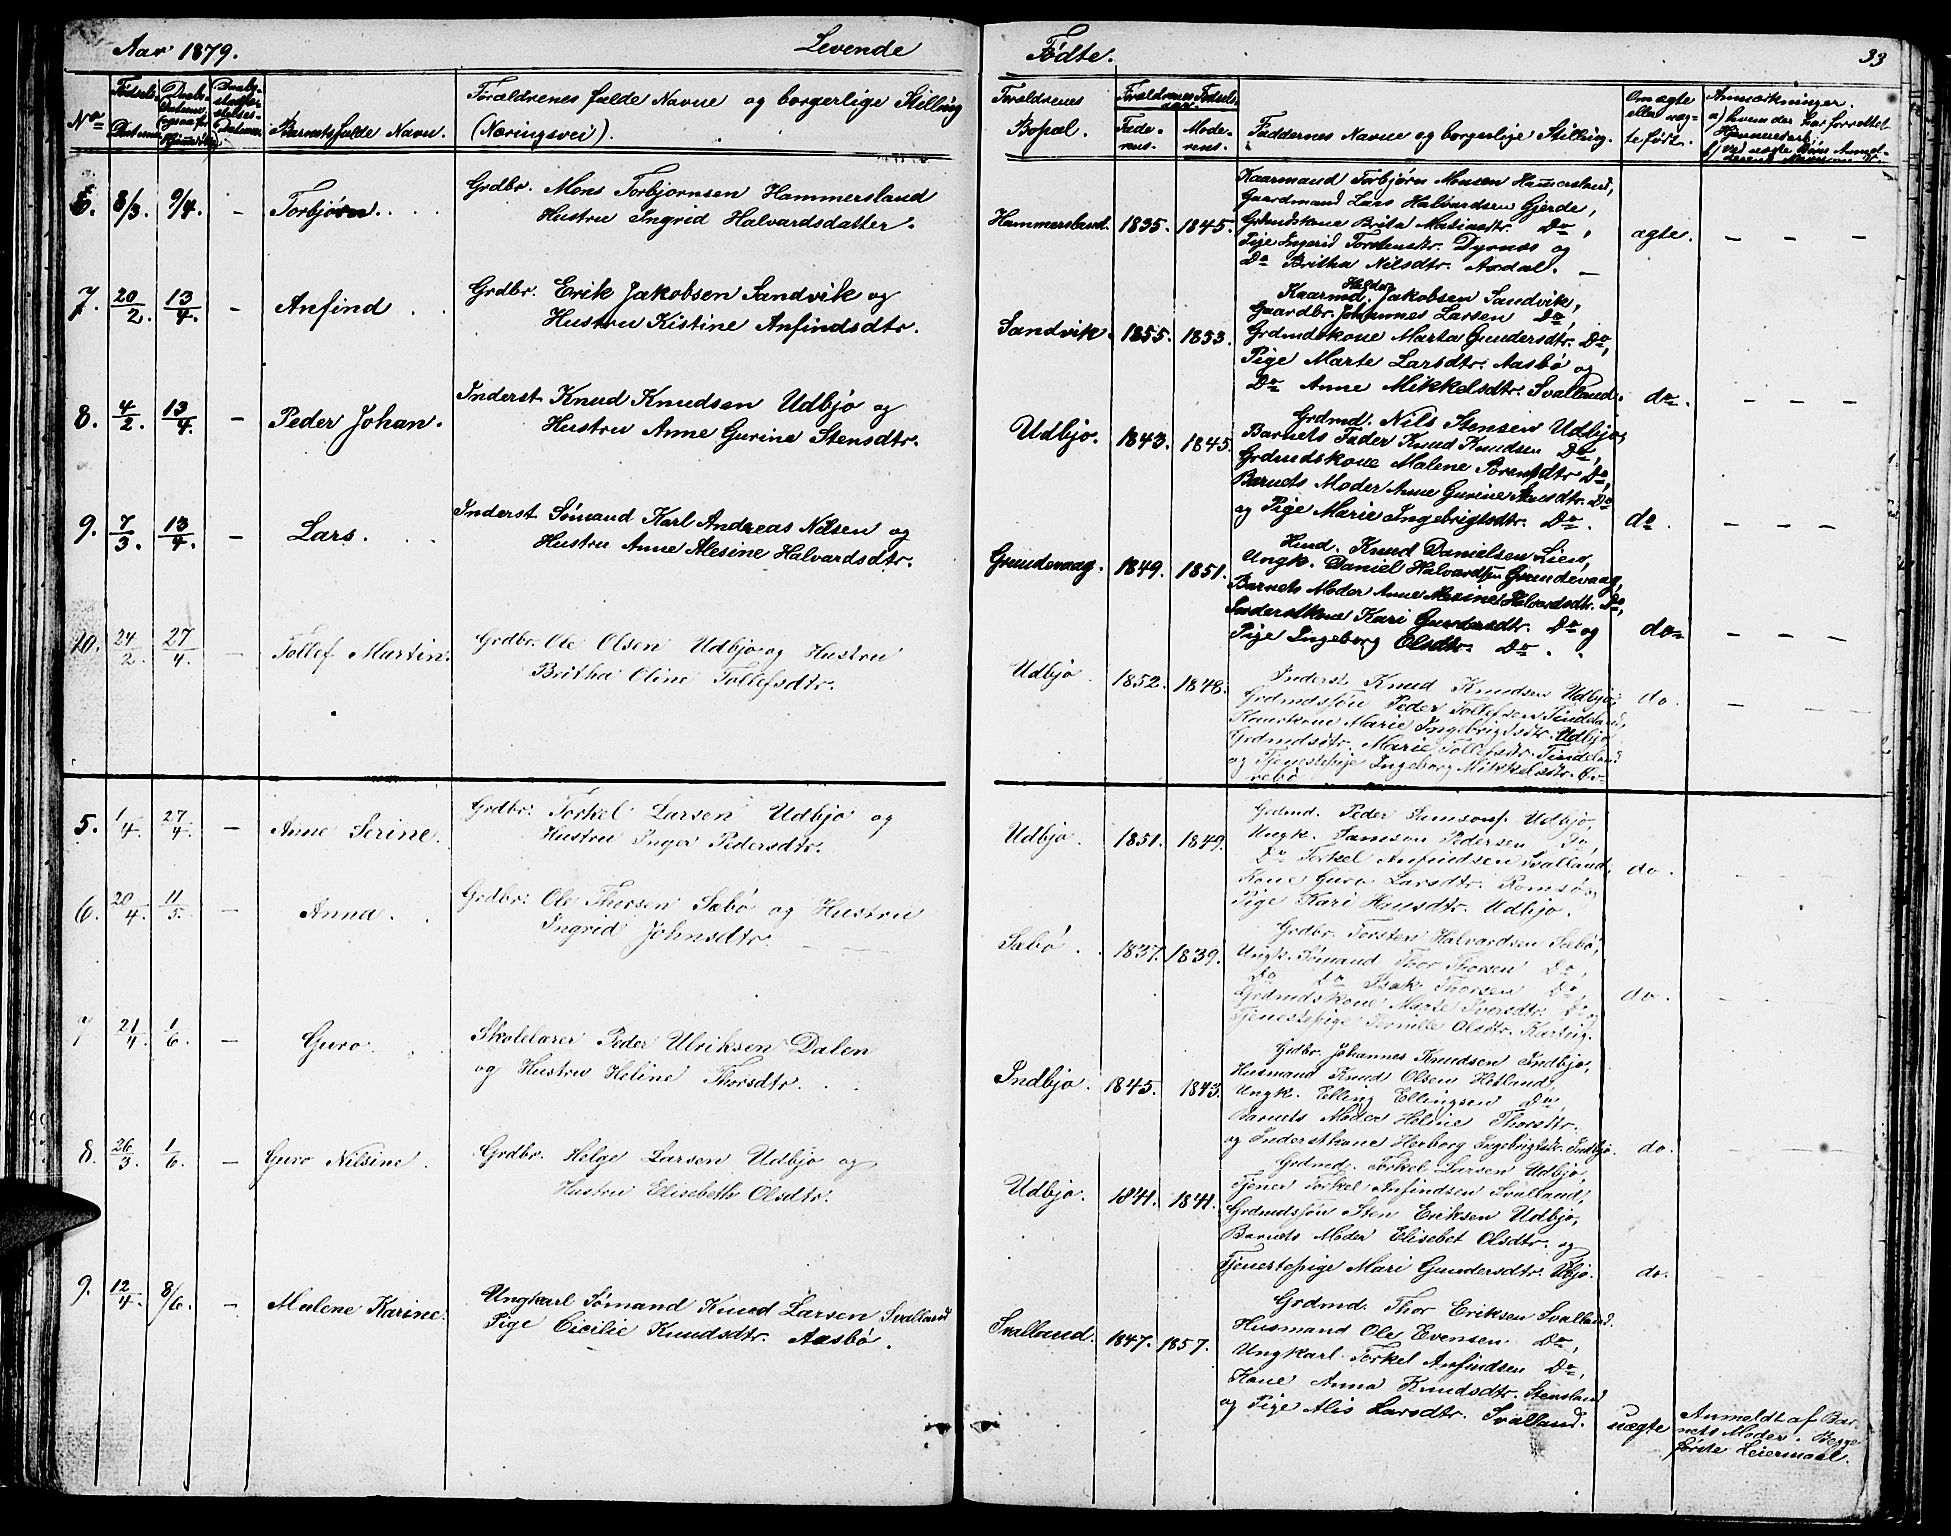 Aar 1879.
Levende
No
Fødsels-
Datum.
Daabs-
Datum
Daabs-
Datum.
Barnets fulde Navn.
Forældrenes fulde Navne og borgerlige Stilling
(Næringsvei).
6. 8/3. 9/4. – Torbjørn.
Grdbr. Mons Torbjørnsen Hammersland
Hustru Ingrid Halvardsdatter.
7. 20/2. 13/4. – Anfind
Grdbr. Erik Jakobsen Sandvik og
Hustru Kistine Anfindsdtr.
8. 4/2. 13/4. – Peder Johan.
Inderst Knud Knudsen Udbjo og
Hustru Anne Gurine Stensdtr.
9. 7/3. 13/4. – Lars.
Inderst Sømand Karl Andreas Nilsen og
Hustru Anne Alesine Halvardsdtr.
10. 24/2. 27/4. – Tollef Martin.
Grdbr. Ole Olsen Udbjo og Hustru
Britha Oline Tollefsdtr.
5. 1/4. 27/4. – Anne Serine.
Grdbr. Torkel Larsen Udbjo og
Hustru Inger Pedersdtr.
6. 20/4. 11/5. – Anna.
Grdbr. Ole Thorsen Sabø og Hustru
Ingrid Johnsdtr.
7 21/4 1/6. – Guro
Skolelærer Peder Ulriksen Dalen
og Hustru Heline Thorsdtr.
8. 26/3. 1/6. – Guro Nilsine.
Grdbr. Helge Larsen Udbjo og
Hustru Elisebeth Olsdtr.
9. 12/4. 8/6. – Malene Karine.
Ungkarl Sømand Knud Larsen Svalland
Pige Cicilie Knudsdtr. Aasbø.
Fødte.
33
Forældrenes
Bopæl.
Forældrenes Fødsels-
aar.
Fade-
rens.
Mode-
rens.
Faddernes Navne og borgerlige Stilling.
Om ægte
eller uæg-
te født.
Anmærkninger.
a) hvem der har forrettet
Hjemmedaab.
b) ved uægte Børn Anmel-
Hammersland. 1835. 1845.
Kaarmand Torbjørn Monsen Hammersland,
Gaardmand Lars Halvardsen Gjerde,
Grdmdskone Brita Do,
Pige Ingerid Torstensdtr. Dyrnæs og
Do Britha Nilsdtr. Axdal. –
ægte. – – –
Sandvik. 1855. 1853.
Kaarmd. Jakobsen Sandvik,
Gaardbr. Johannes Larsen Do,
Grdmdskone Marta Gundersdtr. Do,
Pige Marte Larsdtr. Aasbø og
Do Anne Mikkelsdtr. Svalland.
do. – – –
Udbjo. 1843. 1845.
Grdmd. Nils Stensen Udbjo,
Barnets Fader Knud Knudsen Do,
Grdmdskone Malene Sørensdtr Do,
Barnets Moder Anne Gurine Stensdtr. Do
og Pige Marie Ingebrigtsdtr. Do.
do. – – –
Grundevaag. 1849. 1851.
Husmd. Knud Danielsen Lien,
Ungk. Daniel Halvardsen Grundevaag,
Barnets Moder Anne Alesine Halvardsdtr. Do,
Inderstkone Kari Gundersdtr. Do og
Pige Ingeborg Olsdtr. Do.
do – – –
Udbjo 1852. 1848.
Inderst Knud Knudsen Udbjo,
Grdmdssøn Peder Tollefsen Tindeland,
Kaarkone Marie Ingebrigtsdtr. Udbjo
Grdmdsdtr. Marie Tollefsdtr. Tindeland
og Tjenestepige Ingeborg Mikkelsdtr. Øv-
rebø
do. – – –
Udbjo. 1851. 1849.
Grdmd. Peder Samsons. Udbjo,
Ungk. Samson Pedersen Do,
Do Torkel Anfindsen Svalland,
Kone Guro Larsdtr. Romsø og
Pige Kari Hansdtr. Udbjo.
do.
Sabø. 1837. 1839.
Grdbr. Torsten Halvardsen Sæbø,
Ungk. Sømand Thor Thorsen Do,
Do Do Isak Thorsen Do,
Grdmdskone Marte Iversdtr. Do og
Tjenestepige Pernille Olsdtr.
do.
Indbjo. 1845. 1843.
Grdbr. Johannes Knudsen Indbjo,
Husmand Knud Olsen Hetland,
Ungk. Elling Ellingsen Do,
Barnets Moder Heline Thorsdtr.
og Inderstkone Herborg Ingebrigtsdtr. Indbjo.
do.
Udbjo. 1841. 1841.
Grdmd. Torkel Larsen Udbjo,
Tjener Torkel Anfindsen Svalland,
Grdmdssøn Sten Eriksen Udbjo,
Barnets Moder Elisebet Olsdtr. og
Tjenestepige Mari Gundersdtr. Ubjo.
do.
Svalland. 1847. 1857.
Grdmd. Thor Eriksen Svalland.
Husmand Ole Evensen Do,
Ungkarl Torkel Anfindsen Do,
Kone Anna Knudsdtr. Stensland
og Pige Alis Larsdtr. Svalland.
uægte
Anmeldt af Bar-
nets Moder. Begge
første Leiermaal.